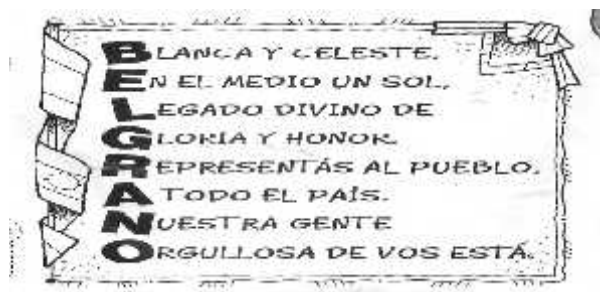 BLANCA Y CELESTE,
EN EL MEDIO UN SOL,
LEGADO DIVINO DE
GLORIA Y HONOR.
REPRESENTÁS AL PUEBLO,
A TODO EL PAÍS.
NUESTRA GENTE
ORGULLOSA DE VOS ESTÁ.